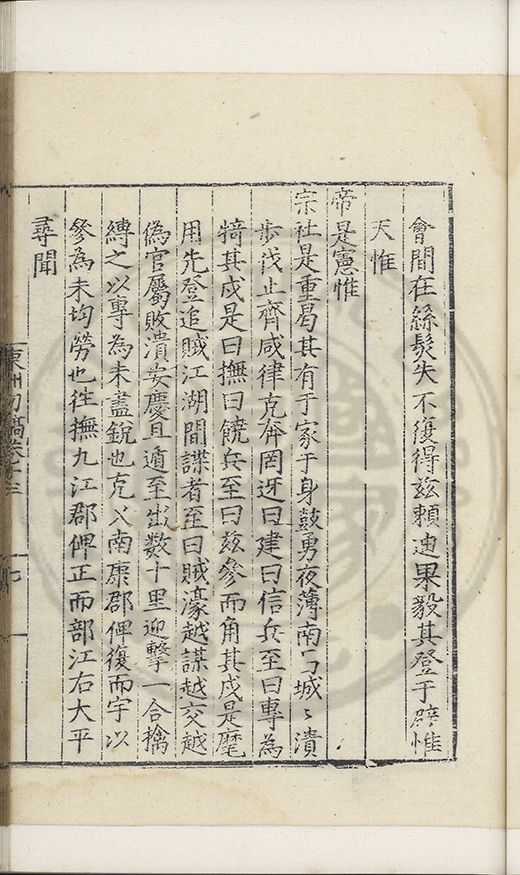 會間在絲髮失不復得玆賴廸果毅其登于辟惟
天惟
帝是憲惟
宗社是重曷其有于家于身鼓勇夜薄南昌城〻潰
步伐止齊咸律克奔罔迓曰建曰信兵至曰專為
犄其戍是曰撫曰饒兵至曰玆參而角其戍是麾
用先登追賊江湖間諜者至曰賊濠越謀越交越
偽官屬敗潰安慶且遁至出数十里迎擊一合擒
縛之以專為未盡銳也克入南康郡俾復而宇以
參為未均勞也徃撫九江郡俾正而部江右大平
尋聞
東洲初稿卷十三